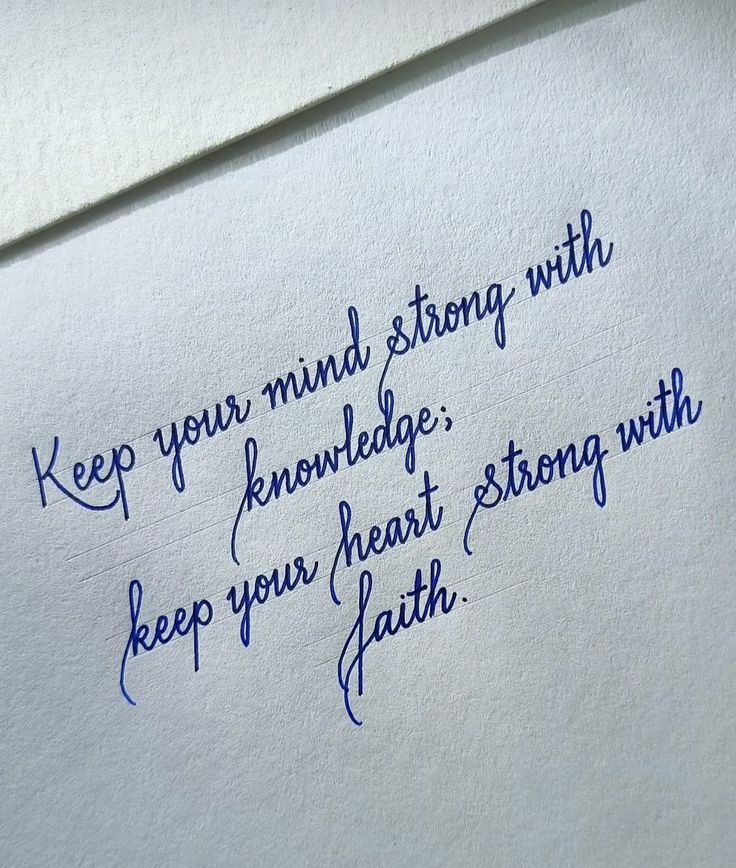 Keep your mind strong with
knowledge;
keep your heart strong with
faith.